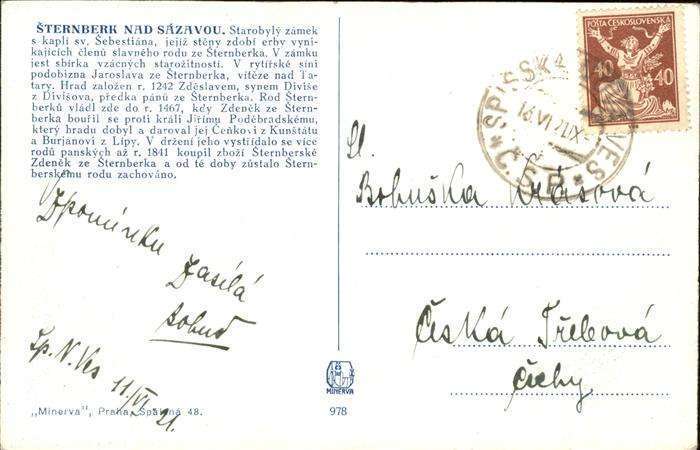 ŠTERNBERK NAD SÁZAVOU. Starobylý zámek
s kaplí sv. Šebestiána, jejíž stěny zdobí erby vyni-
kajících členů slavného rodu ze Šternberka. V zámku
jest sbírka vzácných starožitností. V rytířské síni
podobizna Jaroslava ze Šternberka, vítěze nad Ta-
tary. Hrad založen r. 1242 Zdeslavem, synem Diviše
z Divišova, předka pánů ze Šternberka. Rod Štern-
berků vládl zde do r. 1467, kdy Zdeněk ze Štern-
berka bouřil se proti králi Jiřímu Poděbradskému,
který hradu dobyl a daroval jej Čeňkovi z Kunštátu
a Burjanovi z Lipy. V držení jeho vystřídalo se více
rodů panských až r. 1841 koupil zboží Šternberské
Zdeněk ze Šternberka a od té doby zůstalo Štern-
berskému rodu zachováno.
Vzpomínku
zasílá
Sp. N. Ves 11/VI 21.
„Minerva", Praha, Spálená 48.
MINERVA
978
POŠTA ČESKOSLOVENSKÁ
40 40
SPIŠSKÁ VES
Č.S.P.
Sl.
Bohuška
Česká Třebová
Čechy